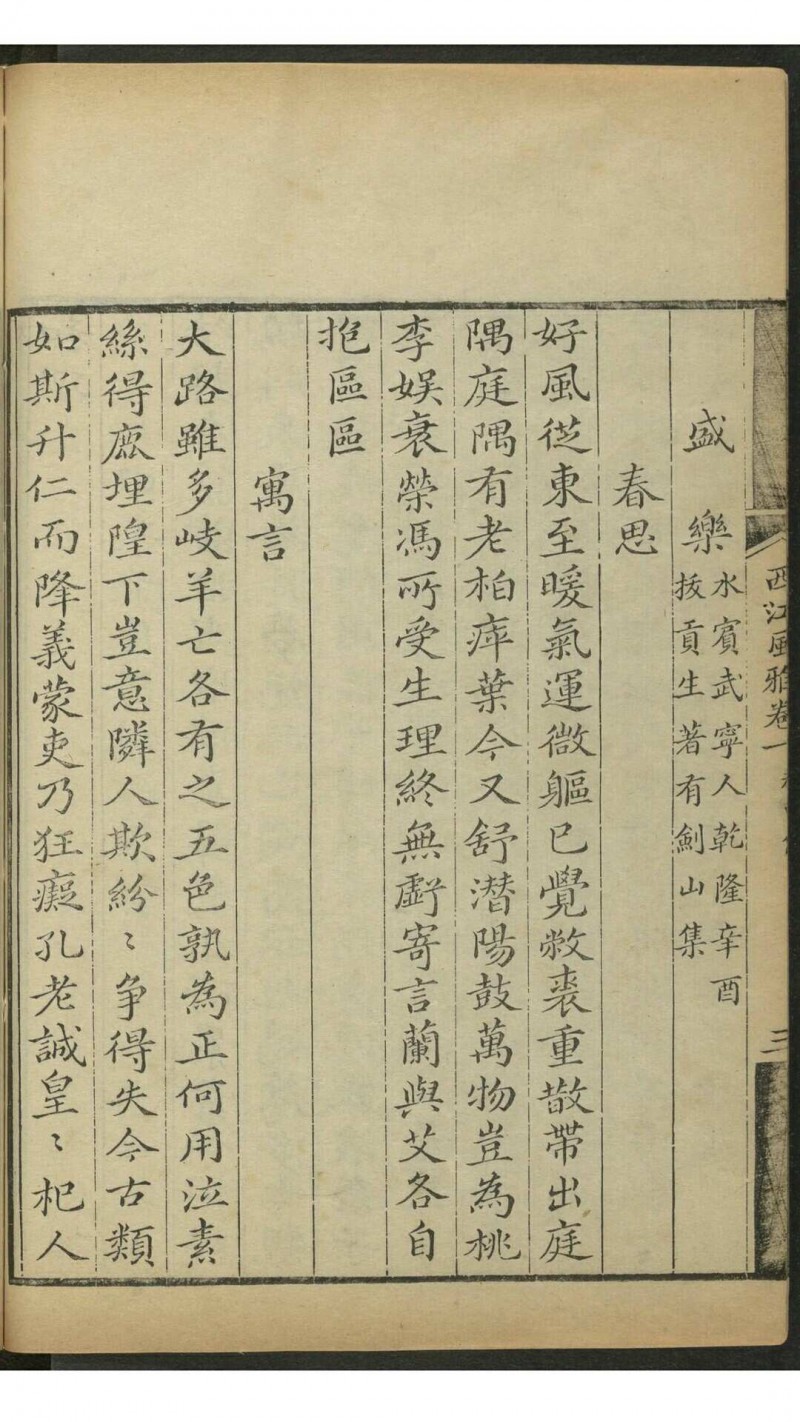 西江風雅卷一
三
盛樂 水賓武寧人乾隆辛酉
拔貢生著有劍山集
春思
好風從東至暖氣運微軀已覺敝裘重散帶出庭
隅庭隅有老柏瘁葉今又舒潛陽鼓萬物豈為桃
李娱衰榮馮所受生理終無虧寄言蘭與艾各自
抱區區
寓言
大路雖多岐羊亡各有之五色孰為正何用泣素
絲得鹿埋隍下豈意隣人欺紛〻爭得失今古類
如斯升仁而降義蒙吏乃狂癡孔老誠皇〻杞人